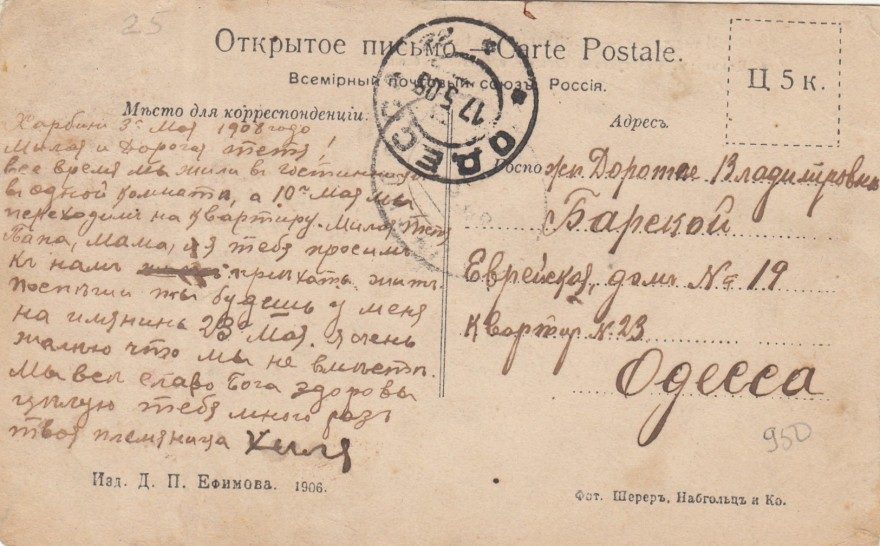 25
Открытое письмо — Carte Postale.
Всемірный почтовый союзъ, Россія.
Ц 5 к.
Мѣсто для корреспонденціи
Адресъ.
ОДЕССА
17 5 08
Харбинъ 3го Мая 1908 годо
Милая и Дорогая тетя!
все время мы жили в гостинице
в одной комнатѣ, а 10го мая мы
переходимъ на квартиру. Милая тетя
Папа, мама, и я тебя просимъ
къ намъ приѣхать жить.
поспѣши ты будешь у меня
на имянины 23го Мая. Я очень
жалею что мы не вмѣсте.
Мы всѣ славо Бога здоровы
цѣлую тебя много разъ
твоя племяница Хиля
Госпожи Доротее Владимровне
Барской
Еврейская, домъ № 19
Квартир N. 23
Одесса
950
Изд. Д. П. Ефимова. 1906.
Фот. Шереръ, Набгольцъ и Ко.